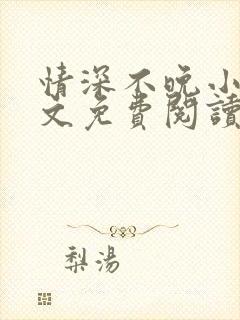 情深不晚小
文免費閱讀
梨湯